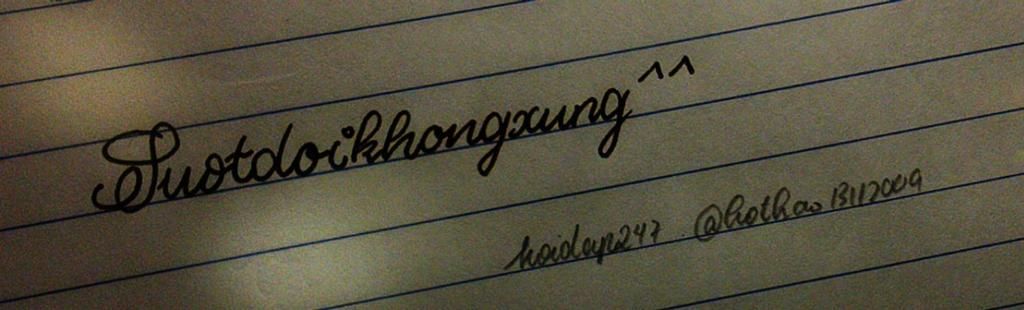 Suotdoikhongxung ^^
hoidap247 @hothao13112009